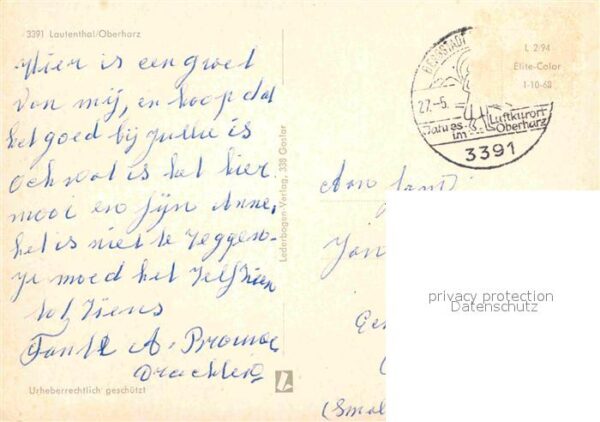 3391 Lautenthal/Oberharz
Hier is een groet
van mij, en hoop dat
het goed bij jullie is
och wat is het hier
mooi en fijn Anne,
het is niet te zeggen
je moed het zelf zien
tot ziens
Tante A.
Urheberrechtlich geschützt
Lederbogen-Verlag, 338 Goslar
BERGSTADT
27.-5.
Jahres
im
Luftkurort
Oberharz
3391
L 2/94
Elite-Color
1-10-68
Aan
Jan
privacy protection
Datenschutz